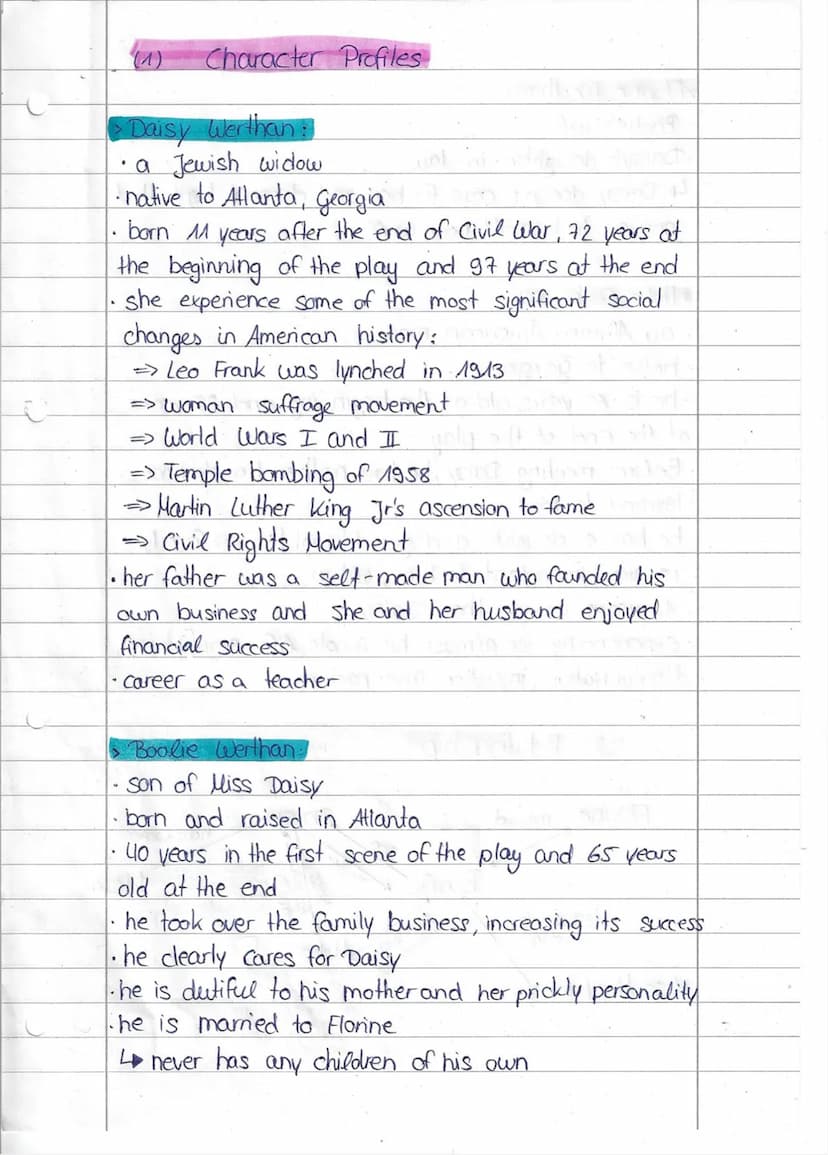 (1) Character Profiles
> Daisy Werthan:
· a Jewish widow
· native to Atlanta, Georgia
· born 11 years after the end of Civil War, 72 years at
the beginning of the play and 97 years at the end
· she experience some of the most significant social
changes in American history:
=> Leo Frank was lynched in 1913
=> woman suffrage movement
=> World Wars I and II
=> Temple bombing of 1958
=> Martin Luther King Jr's ascension to fame
=> Civil Rights Movement
· her father was a self-made man who founded his
own business and she and her husband enjoyed
financial success
· career as a teacher
> Boolie Werthan:
· son of Miss Daisy
· born and raised in Atlanta
· 40 years in the first scene of the play and 65 years
old at the end
· he took over the family business, increasing its success
· he clearly cares for Daisy
· he is dutiful to his mother and her prickly personality
· he is married to Florine
↳ never has any children of his own